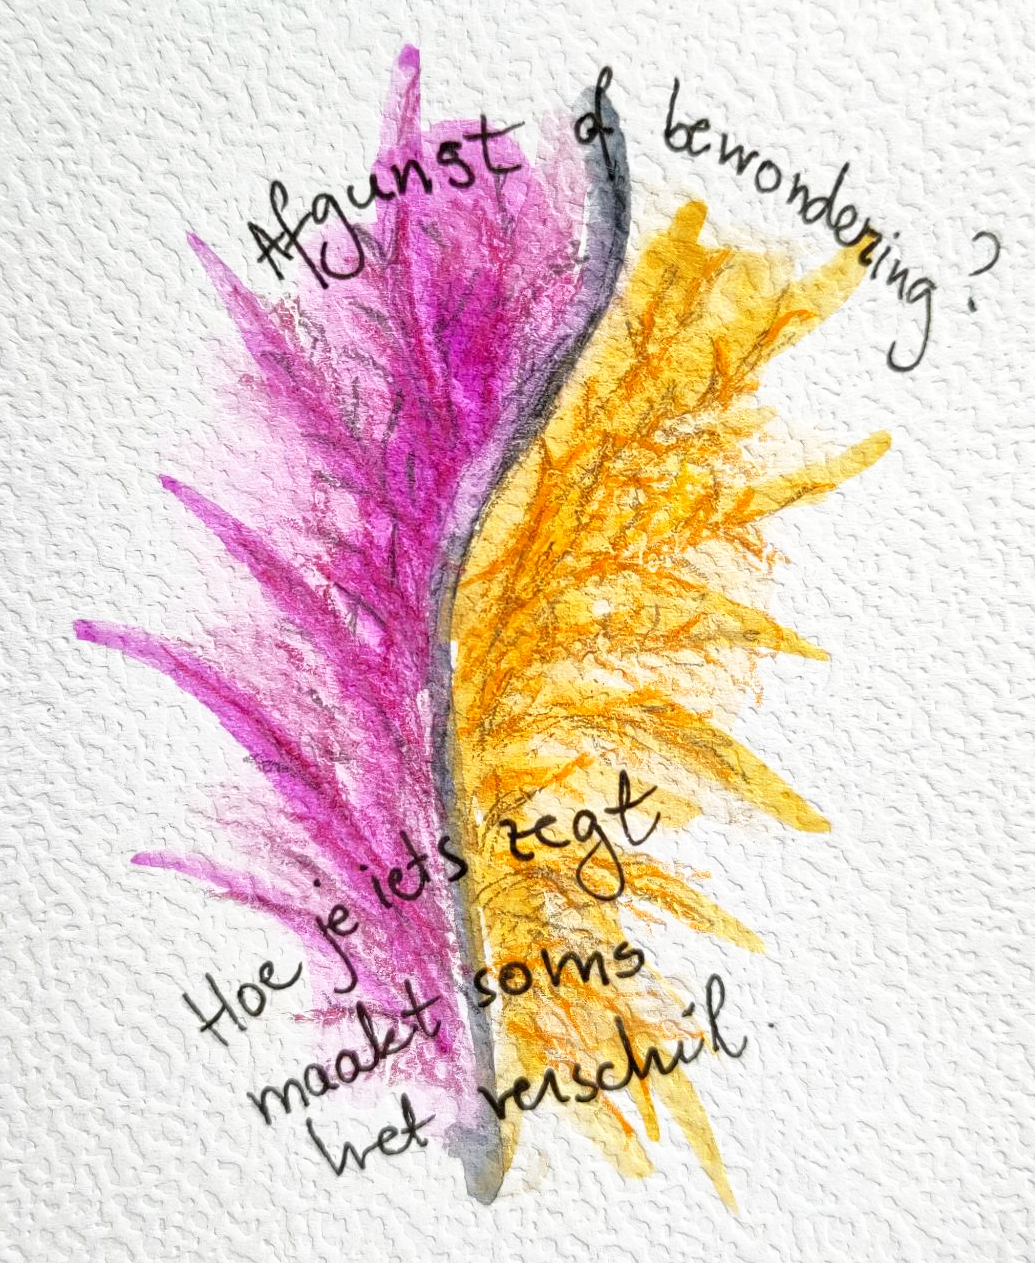 Afgunst of bewondering?
Hoe je iets zegt
maakt soms
het verschil.